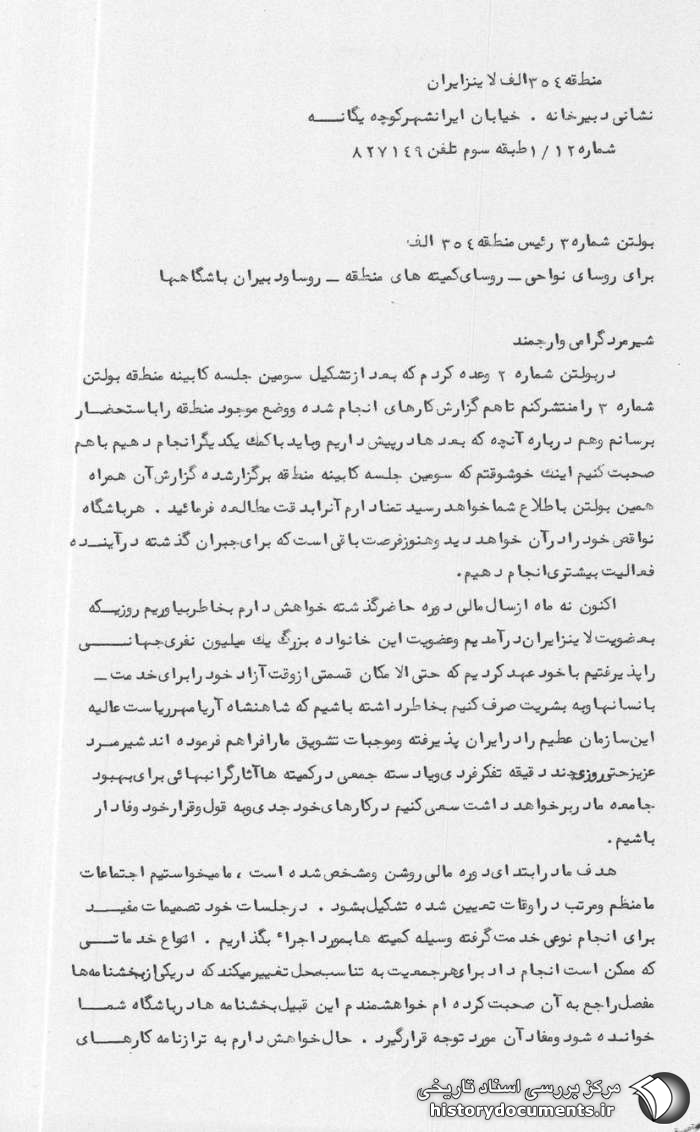 منطقه ۳۵۴ الف لاینز ایران
نشانی دبیرخانه . خیابان ایرانشهر کوچه یگانه
شماره ۱/۱۲ طبقه سوم تلفن ۸۲۷۱۴۹
بولتن شماره ۳ رئیس منطقه ۳۵۴ الف
برای روسای نواحی ـ روسای کمیته های منطقه ـ روسا ودبیران باشگاهها
شیرمرد گرامی وارجمند
دربولتن شماره ۲ وعده کردم که بعد ازتشکیل سومین جلسه کابینه منطقه بولتن
شماره ۳ رامنتشرکنم تاهم گزارش کارهای انجام شده ووضع موجود منطقه راباستحضار
برسانم وهم درباره آنچه که بعدها درپیش داریم وباید باکمک یکدیگرانجام دهیم باهم
صحبت کنیم اینک خوشوقتم که سومین جلسه کابینه منطقه برگزارشده گزارش آن همراه
همین بولتن باطلاع شماخواهد رسید تمنادارم آنرابدقت مطالعه فرمائید . هرباشگاه
نواقص خود رادرآن خواهد دید وهنوزفرصت باقی است که برای جبران گذشته درآینده
فعالیت بیشتری انجام دهیم.
اکنون نه ماه ازسال مالی دوره حاضرگذشته خواهش دارم بخاطربیاوریم روزیکه
بعضویت لاینزایران درآمدیم وعضویت این خانواده بزرگ یک میلیون نفری جهانی
راپذیرفتیم باخود عهد کردیم که حتی الامکان قسمتی ازوقت آزاد خود رابرای خدمت ـ
بانسانها وبه بشریت صرف کنیم بخاطرداشته باشیم که شاهنشاه آریامهرریاست عالیه
این سازمان عظیم رادرایران پذیرفته وموجبات تشویق مارافراهم فرموده اند شیرمرد
عزیزحتی روزی چند دقیقه تفکرفردی ویادسته جمعی درکمیته هاآثارگرانبهائی برای بهبود
جامعه مادربرخواهد داشت سعی کنیم درکارهای خود جدی وبه قول وقرارخود وفادار
باشیم.
هدف مادرابتدای دوره مالی روشن ومشخص شده است ، مامیخواستیم اجتماعات
مامنظم ومرتب دراوقات تعیین شده تشکیل بشود . درجلسات خود تصمیمات مفید
برای انجام نوعی خدمت گرفته وسیله کمیته هابمورد اجراء بگذاریم . انواع خدماتی
که ممکن است انجام داد برای هرجمعیت به تناسب محل تغییرمیکند که دریکی ازبخشنامه ها
مفصل راجع به آن صحبت کرده ام خواهشمندم این قبیل بخشنامه هادرباشگاه شما
خوانده شود ومفاد آن مورد توجه قرارگیرد . حال خواهش دارم به ترازنامه کارهای
مرکز بررسی اسناد تاریخی
historydocuments.ir